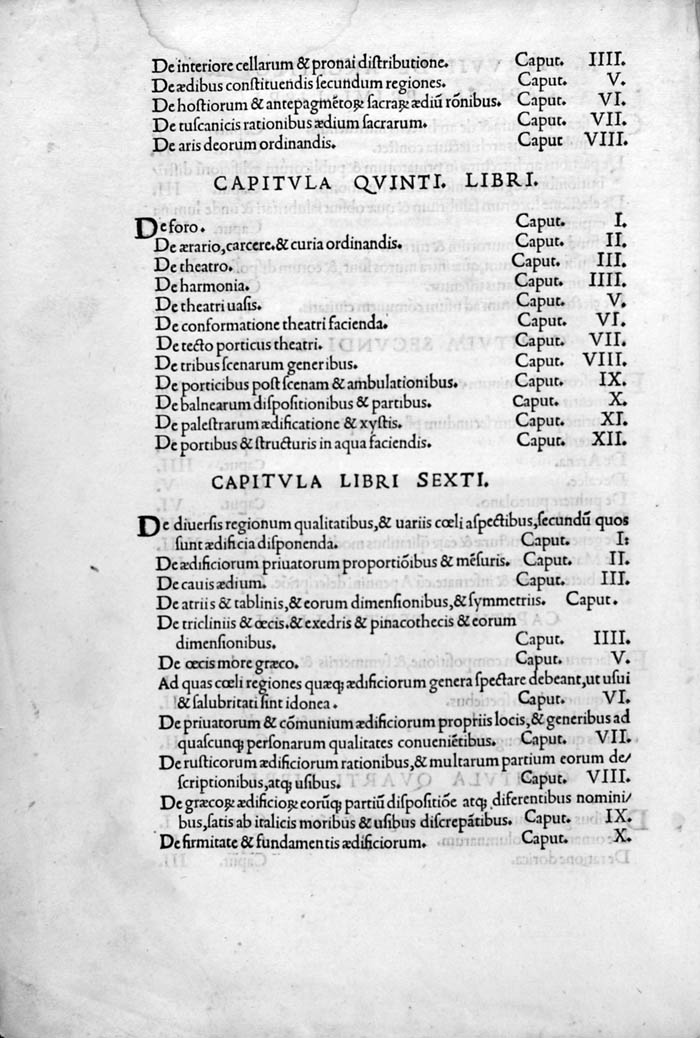 De interiore cellarum & pronai diſtributione. Caput. IIII.
De ædibus conſtituendis ſecundum regiones. Caput. V.
De hoſtiorum & antepagmẽtoꝝ ſacraꝝ ædiũ rõnibus. Caput. VI.
De tuſcanicis rationibus ædium ſacrarum. Caput. VII.
De aris deorum ordinandis. Caput VIII.
CAPITVLA QVINTI. LIBRI.
De foro. Caput. I.
De ærario, carcere. & curia ordinandis. Caput. II.
De theatro. Caput. III.
De harmonia. Caput. IIII.
De theatri uaſis. Caput. V.
De conformatione theatri facienda. Caput. VI.
De tecto porticus theatri. Caput. VII.
De tribus ſcenarum generibus. Caput. VIII.
De porticibus poſt ſcenam & ambulationibus. Caput. IX.
De balnearum diſpoſitionibus & partibus. Caput. X.
De paleſtrarum ædificatione & xyſtis. Caput. XI.
De portibus & ſtructuris in aqua faciendis. Caput. XII.
CAPITVLA LIBRI SEXTI.
De diuerſis regionum qualitatibus, & uariis cœli aſpectibus, ſecundũ quos
ſunt ædificia diſponenda. Caput. I:
De ædificiorum priuatorum proportiõibus & mẽſuris. Caput. II.
De cauis ædium. Caput. III.
De atriis & tablinis, & eorum dimenſionibus, & ſymmetriis. Caput.
De tricliniis & œcis. & exedris & pinacothecis & eorum
dimenſionibus. Caput. IIII.
De œcis more græco. Caput. V.
Ad quas cœli regiones quæqꝫ ædificiorum genera ſpectare debeant, ut uſui
& ſalubritati ſint idonea. Caput. VI.
De priuatorum & cõmunium ædificiorum propriis locis, & generibus ad
quaſcunqꝫ perſonarum qualitates conueniẽtibus. Caput. VII.
De ruſticorum ædificiorum rationibus, & multarum partium eorum de/
ſcriptionibus, atqꝫ uſibus. Caput. VIII.
De græcoꝝ ædificioꝝ eorũqꝫ partiũ diſpoſitiõe atqꝫ diferentibus nomini/
bus, ſatis ab italicis moribus & uſibus diſcrepãtibus. Caput. IX.
De firmitate & fundamentis ædificiorum. Caput. X.